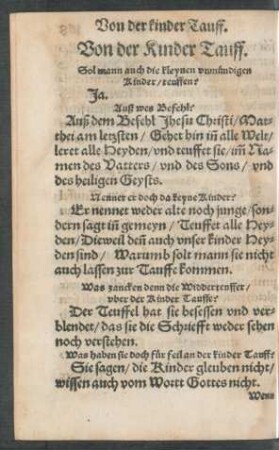 Von der kinder Tauff.
Von der Kinder Tauff.
Sol mann auch die kleynen vnmündigen
Kinder/teuffen?
Ja.
Auß wes Befehl?
Auß dem Befehl Jhesu Christi/Mat-
thei am letzsten/Gehet hin iñ alle Welt/
leret alle Heyden/vnd teuffet sie/im̃ Na-
men des Vatters/vnd des Sons/vnd
des heiligen Geysts.
Nennet er doch da keyne Kinder?
Er nennet weder alte noch junge/son-
dern sagt iñ gemeyn/Teuffet alle Hey-
den/Dieweil deñ auch vnser kinder Hey-
den sind/Warumb solt mann sie nicht
auch lassen zur Tauffe kommen.
Was zancken denn die Widderteuffer/
vber der Kinder Tauffe?
Der Teuffel hat sie besessen vnd ver-
blendet/das sie die Schriefft weder sehen
noch verstehen.
Was haben sie doch für feil an der kinder Tauff?
Sie sagen/die Kinder gleuben nicht/
wissen auch vom Wortt Gottes nicht.
Wenn